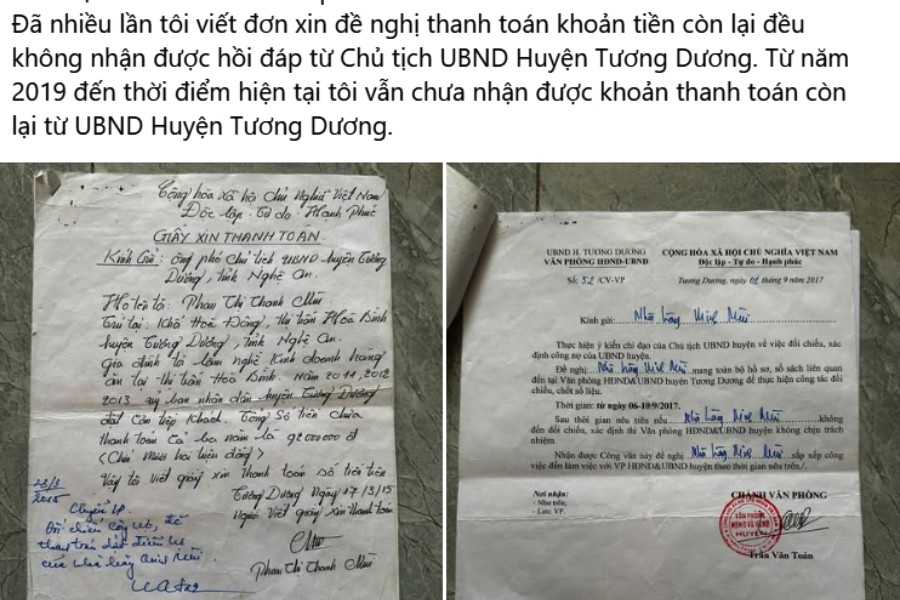 Đã nhiều lần tôi viết đơn xin đề nghị thanh toán khoản tiền còn lại đều
không nhận được hồi đáp từ Chủ tịch UBND Huyện Tương Dương. Từ năm
2019 đến thời điểm hiện tại tôi vẫn chưa nhận được khoản thanh toán còn
lại từ UBND Huyện Tương Dương.
Cộng hòa xã hội Chủ Nghĩa Việt Nam
Độc lập - Tự do - Hạnh Phúc
GIẤY XIN THANH TOÁN
Kính Gửi: Ông phó chủ tịch UBND huyện Tương
Dương, tỉnh Nghệ An.
Họ tên tôi: Phan Thị Thanh Mùi
Trú tại: Khối Hoà Đông, thị trấn Hoà Bình
huyện Tương Dương, tỉnh Nghệ An.
Gia đình tôi làm nghề kinh doanh hàng
ăn tại thị trấn Hoà Bình. Năm 2011, 2012
2013 uỷ ban nhân dân huyện Tương Dương
đặt cơm tiếp khách. Tổng số tiền chưa
thanh toán cả ba năm là 92000000đ
(Chín mươi hai triệu đồng)
Vậy tôi viết giấy xin thanh toán số tiền trên
Tương Dương Ngày 17/3/15
Người viết giấy xin thanh toán
Phan Thị Thanh Mùi
23/3
2015
Chuyển VP.
Đối chiếu công nợ, để
thanh toán dứt điểm nợ
của nhà hàng
UBND H. TƯƠNG DƯƠNG
VĂN PHÒNG HĐND-UBND
Số: 52 /CV-VP
CỘNG HÒA XÃ HỘI CHỦ NGHĨA VIỆT NAM
Độc lập - Tự do - Hạnh phúc
Tương Dương, ngày 01 tháng 9 năm 2017
Kính gửi: Nhà hàng Minh Mùi
Thực hiện ý kiến chỉ đạo của Chủ tịch UBND huyện về việc đối chiếu, xác
định công nợ của UBND huyện.
Đề nghị: Nhà hàng Minh Mùi mang toàn bộ hồ sơ, sổ sách liên quan
đến tại Văn phòng HĐND&UBND huyện Tương Dương để thực hiện công tác đối
chiếu, chốt số liệu.
Thời gian: từ ngày 06-10/9/2017.
Sau thời gian nêu trên nếu Nhà hàng Minh Mùi không
đến đối chiếu, xác định thì Văn phòng HĐND&UBND huyện không chịu trách
nhiệm.
Nhận được Công văn này đề nghị Nhà hàng Minh Mùi sắp xếp công
việc đến làm việc với VP HĐND&UBND huyện theo thời gian nêu trên/.
Nơi nhận:
- Như trên;
- Lưu: VP.
CHÁNH VĂN PHÒNG
VĂN PHÒNG
HĐND & UBND
HUYỆN
Trần Văn Toản